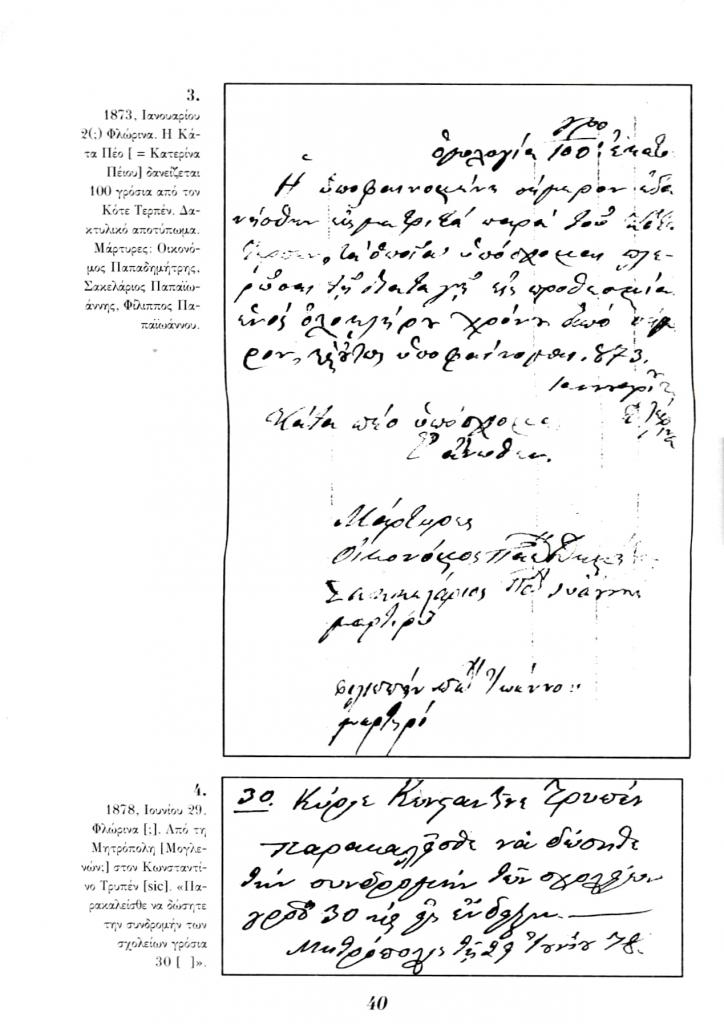 3.
1873, Ιανουαρίου
2(;) Φλώρινα. Η Κά-
τα Πέο [ = Κατερίνα
Πέιου] δανείζεται
100 γρόσια από τον
Κότε Τερπέν. Δα-
κτυλικό αποτύπωμα.
Μάρτυρες: Οικονό-
μος Παπαδημήτρης,
Σακελάριος Παπαϊω-
άννης, Φίλιππος Πα-
παϊωάννου.
ὁμολογία 100: ἑκατὸ
Ἡ ὑποφαινομένη σήμερον ἐδα
νήσθην παρὰ τοῦ
τὰ ὁποῖα ὑπόσχομαι πλε-
ρῶσαι εἰς προθεσμία
ἑνὸς ὁλοκλήρου χρόνου ἀπὸ σήμε
ρον, ὑποφαίνομαι. 873.
Κάτα πέο ὑπόσχομαι
ἄνωθεν.
Μάρτυρες
Οἰκονόμος
Σακκελάριος Ἰωάννης
μαρτιρῶ
Ἰωάννου
μαρτιρό
4.
1878, Ιουνίου 29.
Φλώρινα [;]. Από τη
Μητρόπολη [Μογλε-
νών;] στον Κωνσταντί-
νο Τρυπέν [sic]. «Πα-
ρακαλείσθε να δώσητε
την συνδρομήν των
σχολείων γρόσια
30 [ ]».
30. Κύριε Τρυπέν
παρακαλεῖσθε νὰ δώσηθε
θὴν συνδρομὴν θῶν σχολείων
30
Μηθρόπολις θῇ 29 Ἰουνίου 78.
40